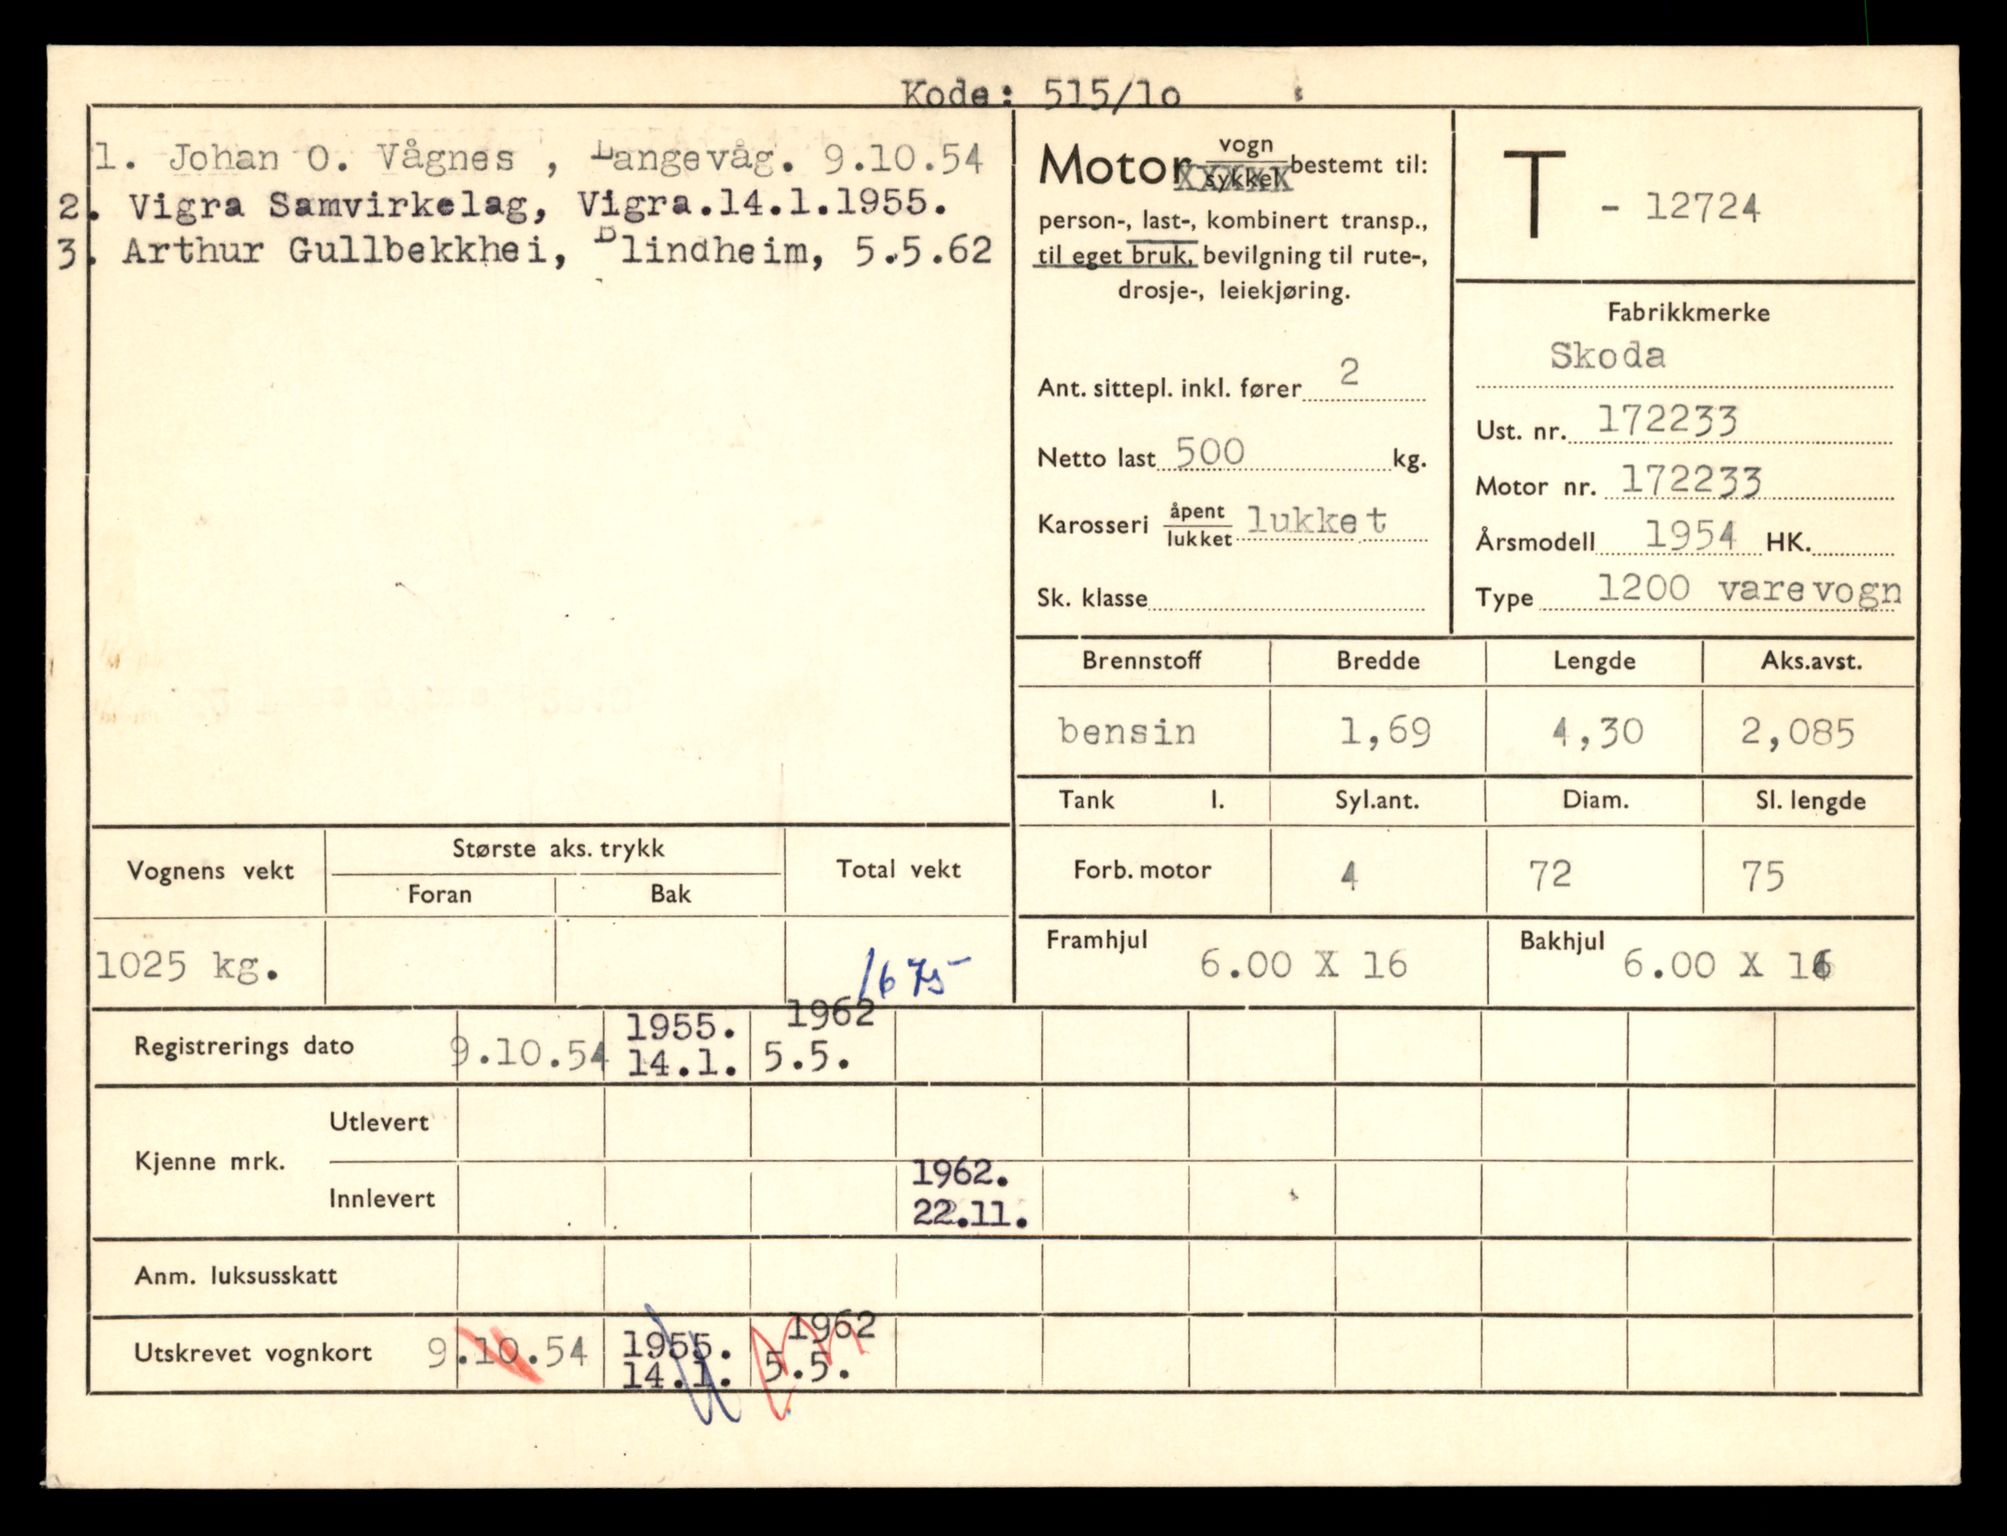 Kode: 515/lo
1. Johan O. Vågnes , Langevåg. 9.10.54
2. Vigra Samvirkelag, Vigra.14.1.1955.
3. Arthur Gullbekkhei, Blindheim, 5.5.62
Motor vogn
sykkel bestemt til:
person-, last-, kombinert transp.,
til eget bruk, bevilgning til rute-,
drosje-, leiekjøring.
Ant. sittepl. inkl. fører 2
Netto last 500 kg.
Karosseri åpent
lukket lukket
Sk. klasse
T - 12724
Fabrikkmerke
Skoda
Ust. nr. 172233
Motor nr. 172233
Årsmodell 1954 HK.
Type 1200 varevogn
Brennstoff Bredde Lengde Aks.avst.
bensin 1,69 4,30 2,085
Tank l. Syl.ant. Diam. Sl. lengde
Forb. motor 4 72 75
Framhjul 6.00 X 16 Bakhjul 6.00 X 16
Vognens vekt Største aks. trykk Total vekt
Foran Bak
1025 kg. 1675
Registrerings dato 9.10.54 1955. 1962
14.1. 5.5.
Kjenne mrk. Utlevert
Innlevert 1962.
22.11.
Anm. luksusskatt
Utskrevet vognkort 9.10.54 1955. 1962
14.1. 5.5.